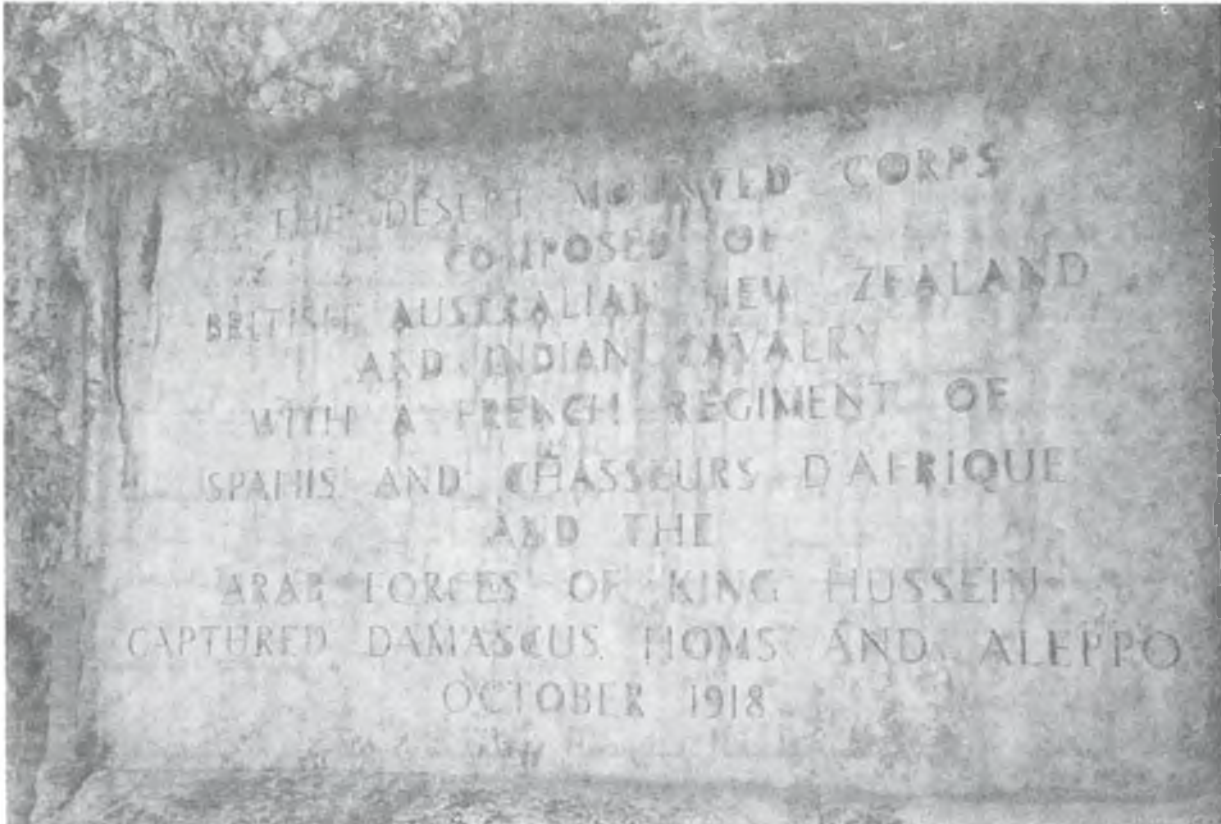 THE DESERT MOUNTED CORPS
COMPOSED OF
BRITISH AUSTRALIAN NEW ZEALAND
AND INDIAN CAVALRY
WITH A FRENCH REGIMENT OF
SPAHIS AND CHASSEURS D'AFRIQUE
AND THE
ARAB FORCES OF KING HUSSEIN
CAPTURED DAMASCUS HOMS AND ALEPPO
OCTOBER 1918